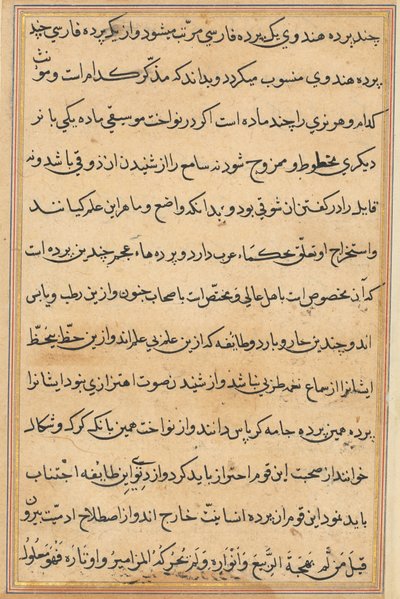 چند پرده هندوی یک پرده فارسی مرتب میشود و از یک پرده فارسی چند
پرده هندوی منسوب میکردد و بداند که مذکر کدام است و مونث
کدام و هر نری را چند ماده است اکر در نواخت موسیقی ماده یکی با نر
دیکری مخطوط و ممزوج شود نه سامع را از شنیدن ان ذوقی باشد و نه
قایل را در کفتن ان شوقی بود و بداند که واضع و ماهر این علم کیانند
و استخراج او تعلق بحکماء عرب دارد و پرده هاء عجم چندین پرده است
که آن مخصوص است باهل عالی و مختص است باصحاب جنون و ازین رطب و یابس
اند و چندین حار و بارد و طایفه که از این علم بی علم اند و ازین حظ بی حظ
ایشانرا از سماع نغمه طربی نباشد و از شنیدن صوت اهتزازی نبود ایشانرا
پرده همین پرده جامه کرباس دانند و از نواخت همین بانک کرک و شکال
خوانند از صحبت این قوم احتراز باید کرد و از دنوی این طایفه اجتناب
باید نمود این قوم از پرده انسانیت خارج اند و از اصطلاح ادمیت بیرون
قیل من لم یهیجه الربیع و انواره و لم تحرکه المزامیر و اوتاره فهو معلول